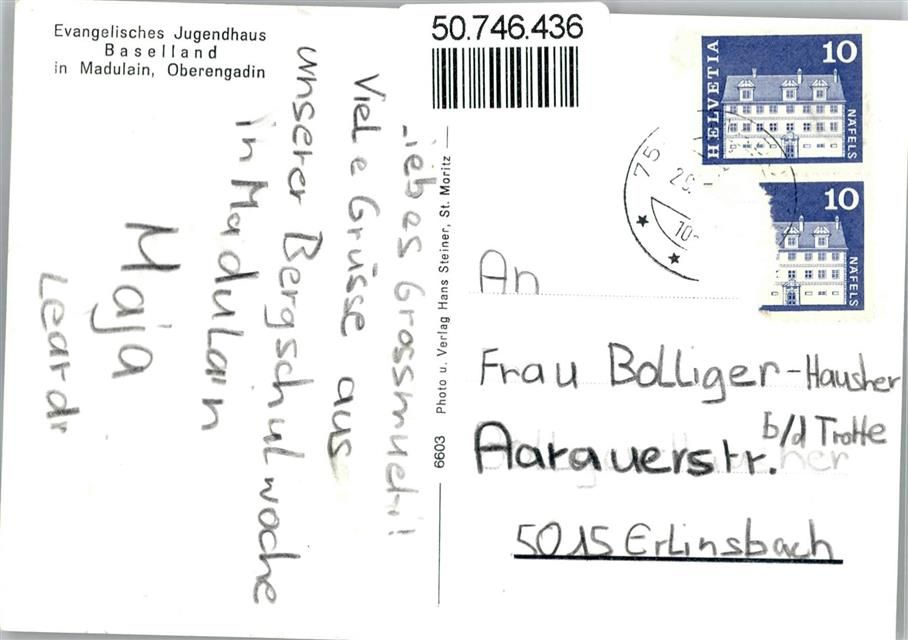 Evangelisches Jugendhaus
Baselland
in Madulain, Oberengadin
50.746.436
HELVETIA
10
NÄFELS
10
NÄFELS
75
10-
-iebes Grossmueti!
Viele Grüsse aus
unserer Bergschulwoche
in Madulain
Maja
6603 Photo u. Verlag Hans Steiner, St. Moritz
An
Frau Bolliger-Hausher
b/d Trotte
Aarauerstr.
5015 Erlinsbach